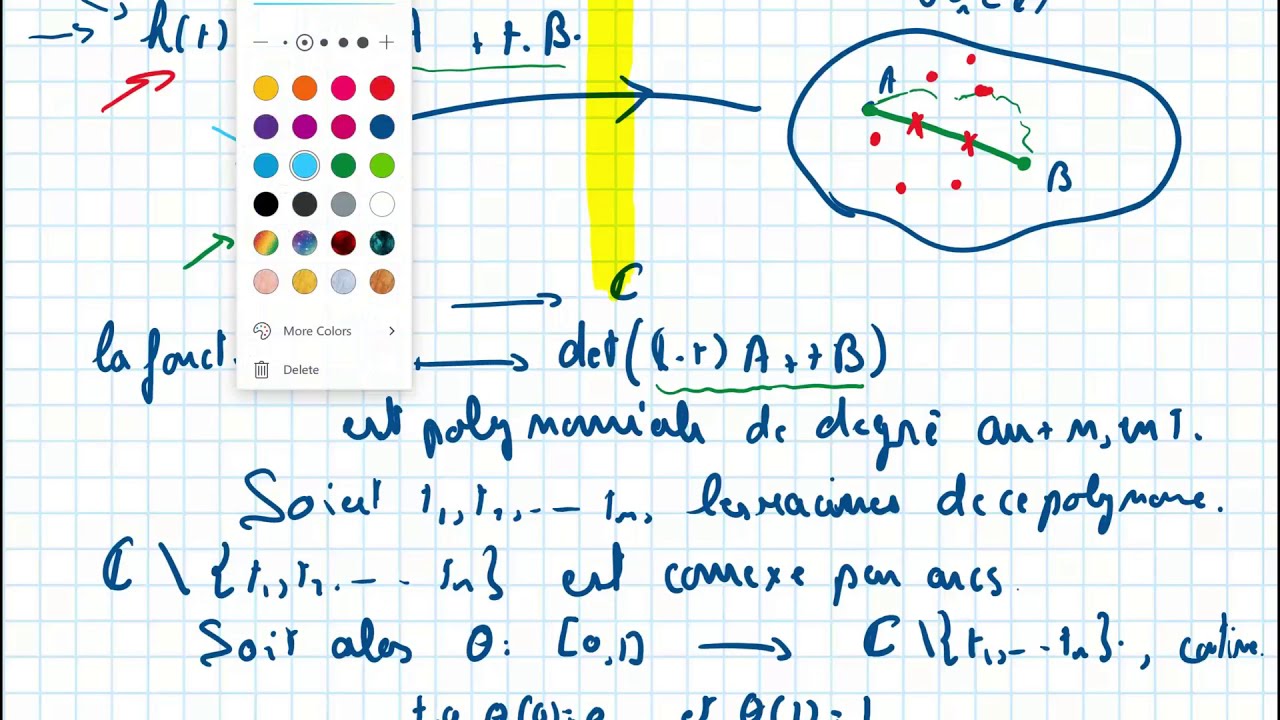 h(t) + t.B.
A
B
C
More Colors
la fonct. det((1-t)A + tB)
Delete
est polynomiale de degré au + n, en T.
Soient t₁, t₂, .-- tₙ, les racines de ce polynome.
ℂ \ {t₁, t₂. -- . tₙ} est connexe par arcs.
Soit alors θ: [0,1] → ℂ \ {t₁,-..tₙ}., continue.
tq θ(0)=0 et θ(1)=1